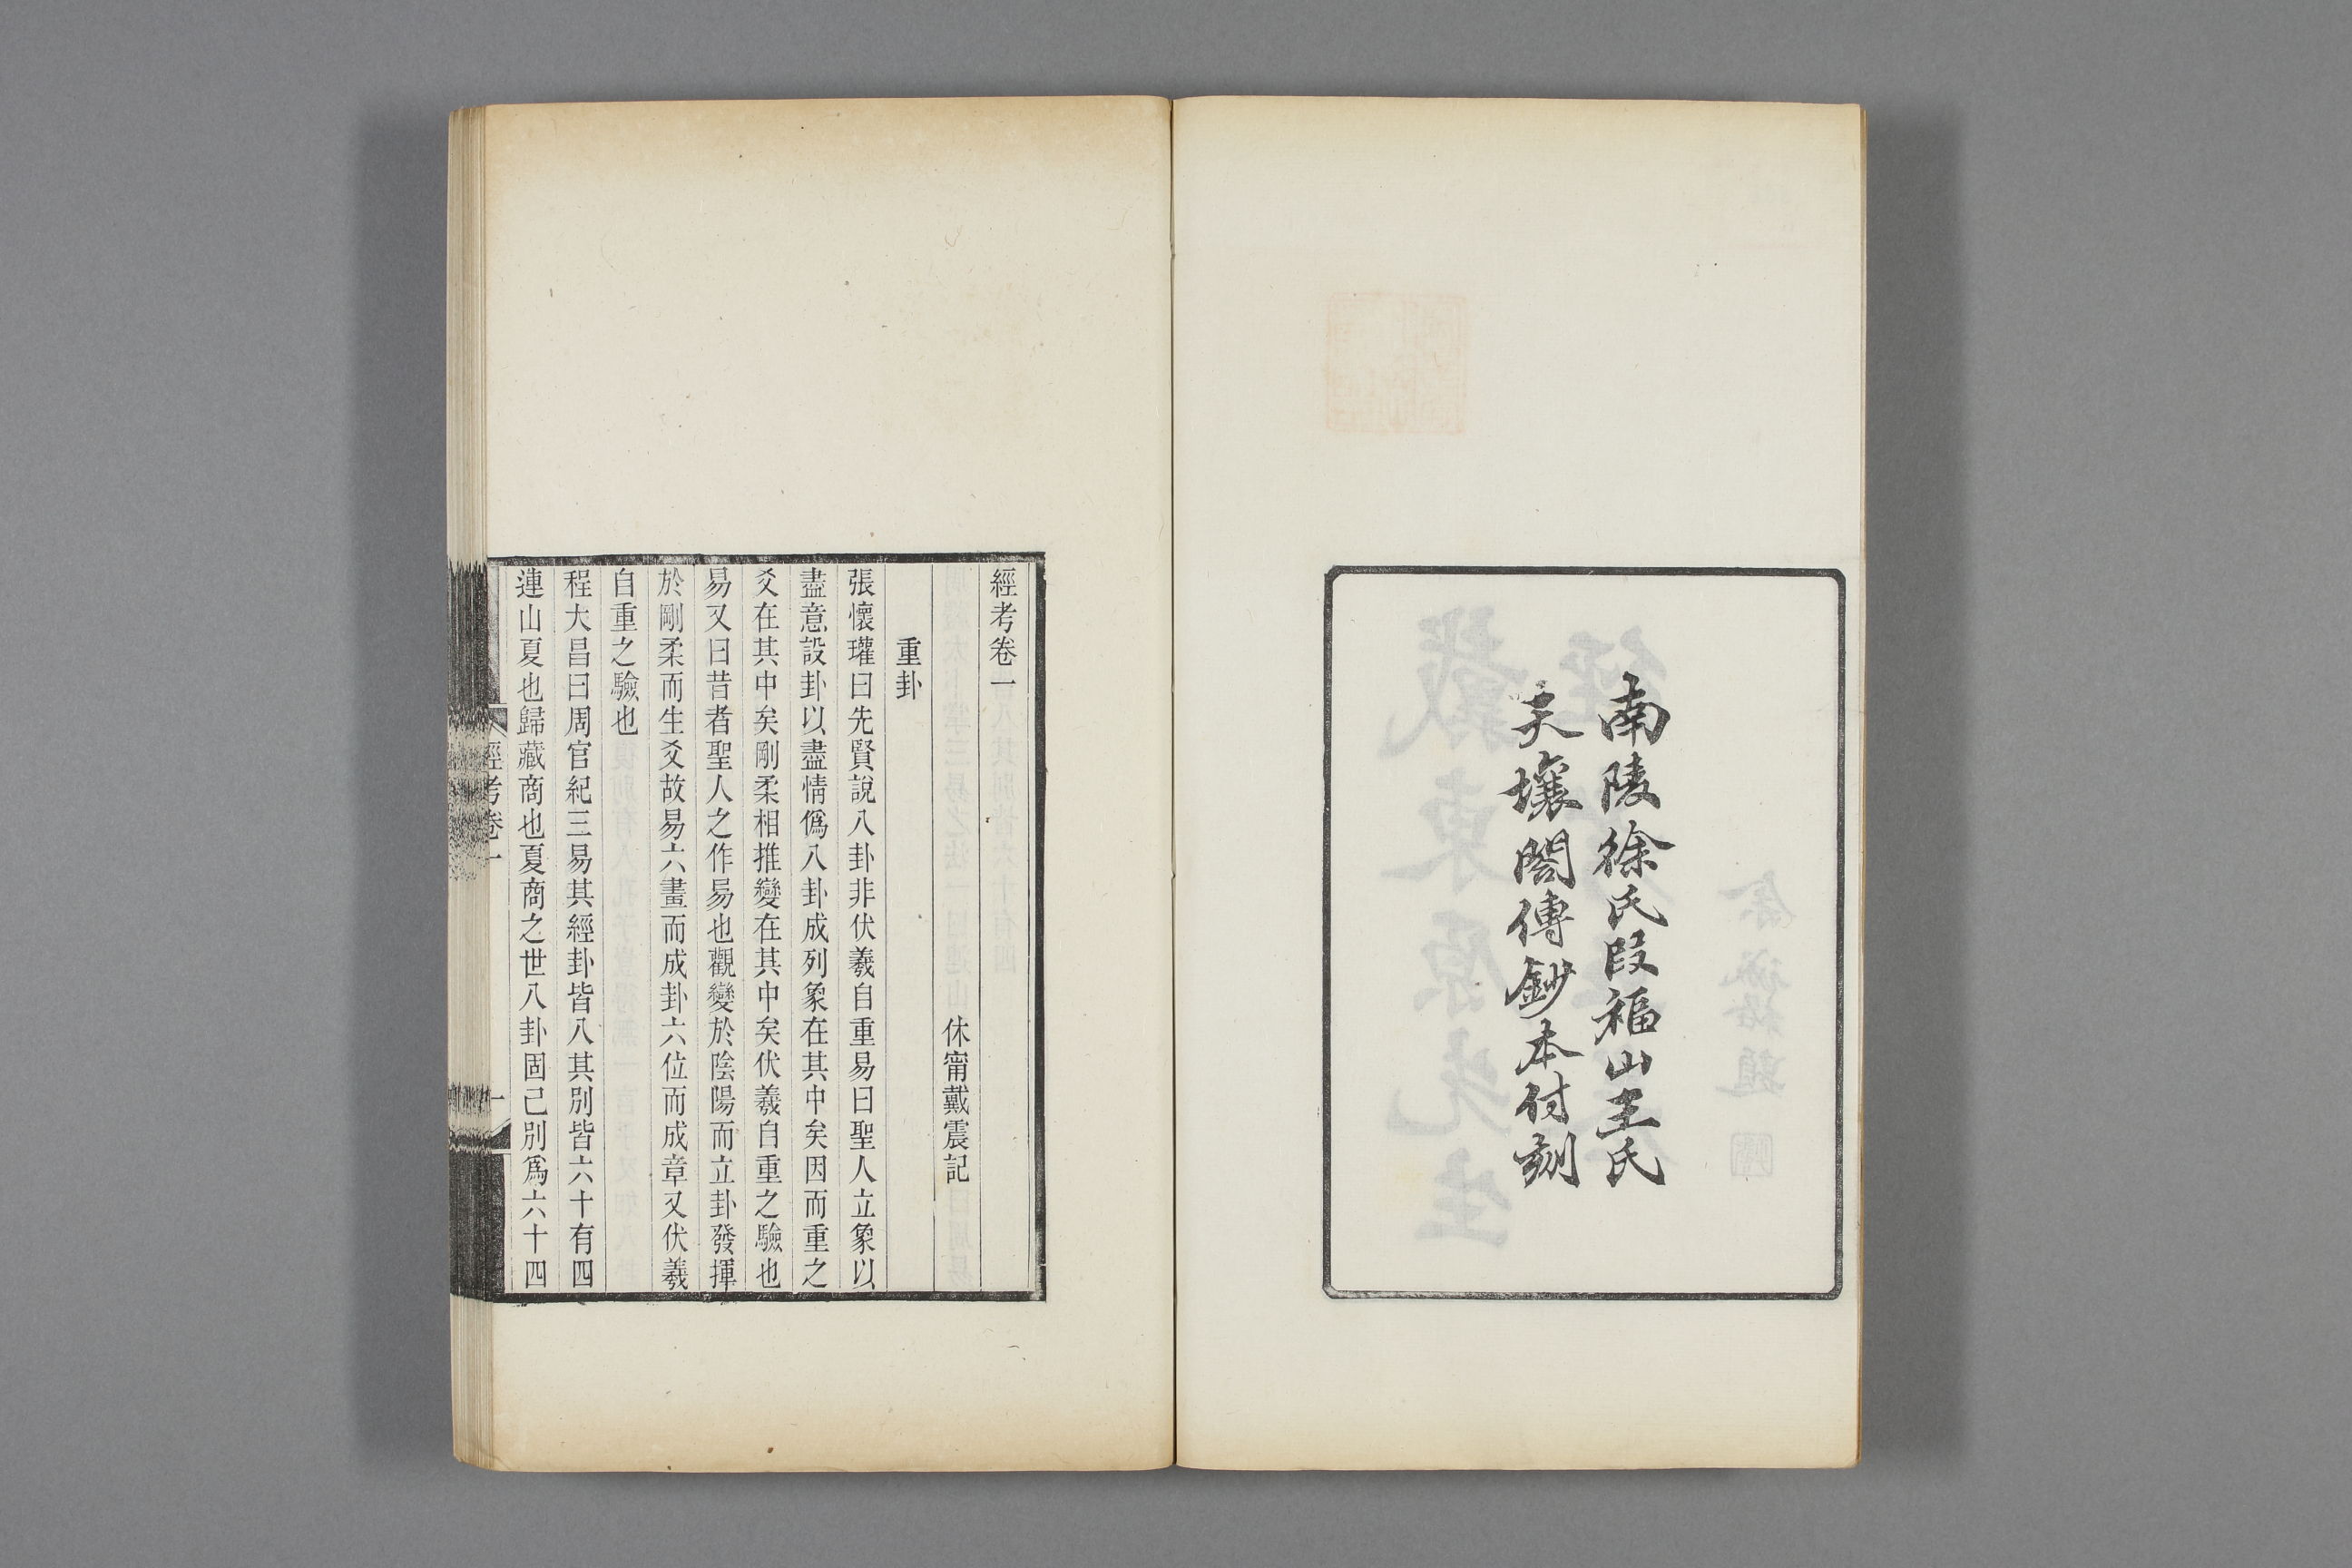 南陵徐氏叚福山王氏
天壤閣傳鈔本付刻
經考卷一
休甯戴震記
重卦
張懷瓘曰先賢說八卦非伏羲自重易曰聖人立象以
盡意設卦以盡情僞八卦成列象在其中矣因而重之
爻在其中矣剛柔相推變在其中矣伏羲自重之驗也
易又曰昔者聖人之作易也觀變於陰陽而立卦發揮
於剛柔而生爻故易六畫而成卦六位而成章又伏羲
自重之驗也
程大昌曰周官紀三易其經卦皆八其別皆六十有四
連山夏也歸藏商也夏商之世八卦固已別爲六十四
經考卷一
一